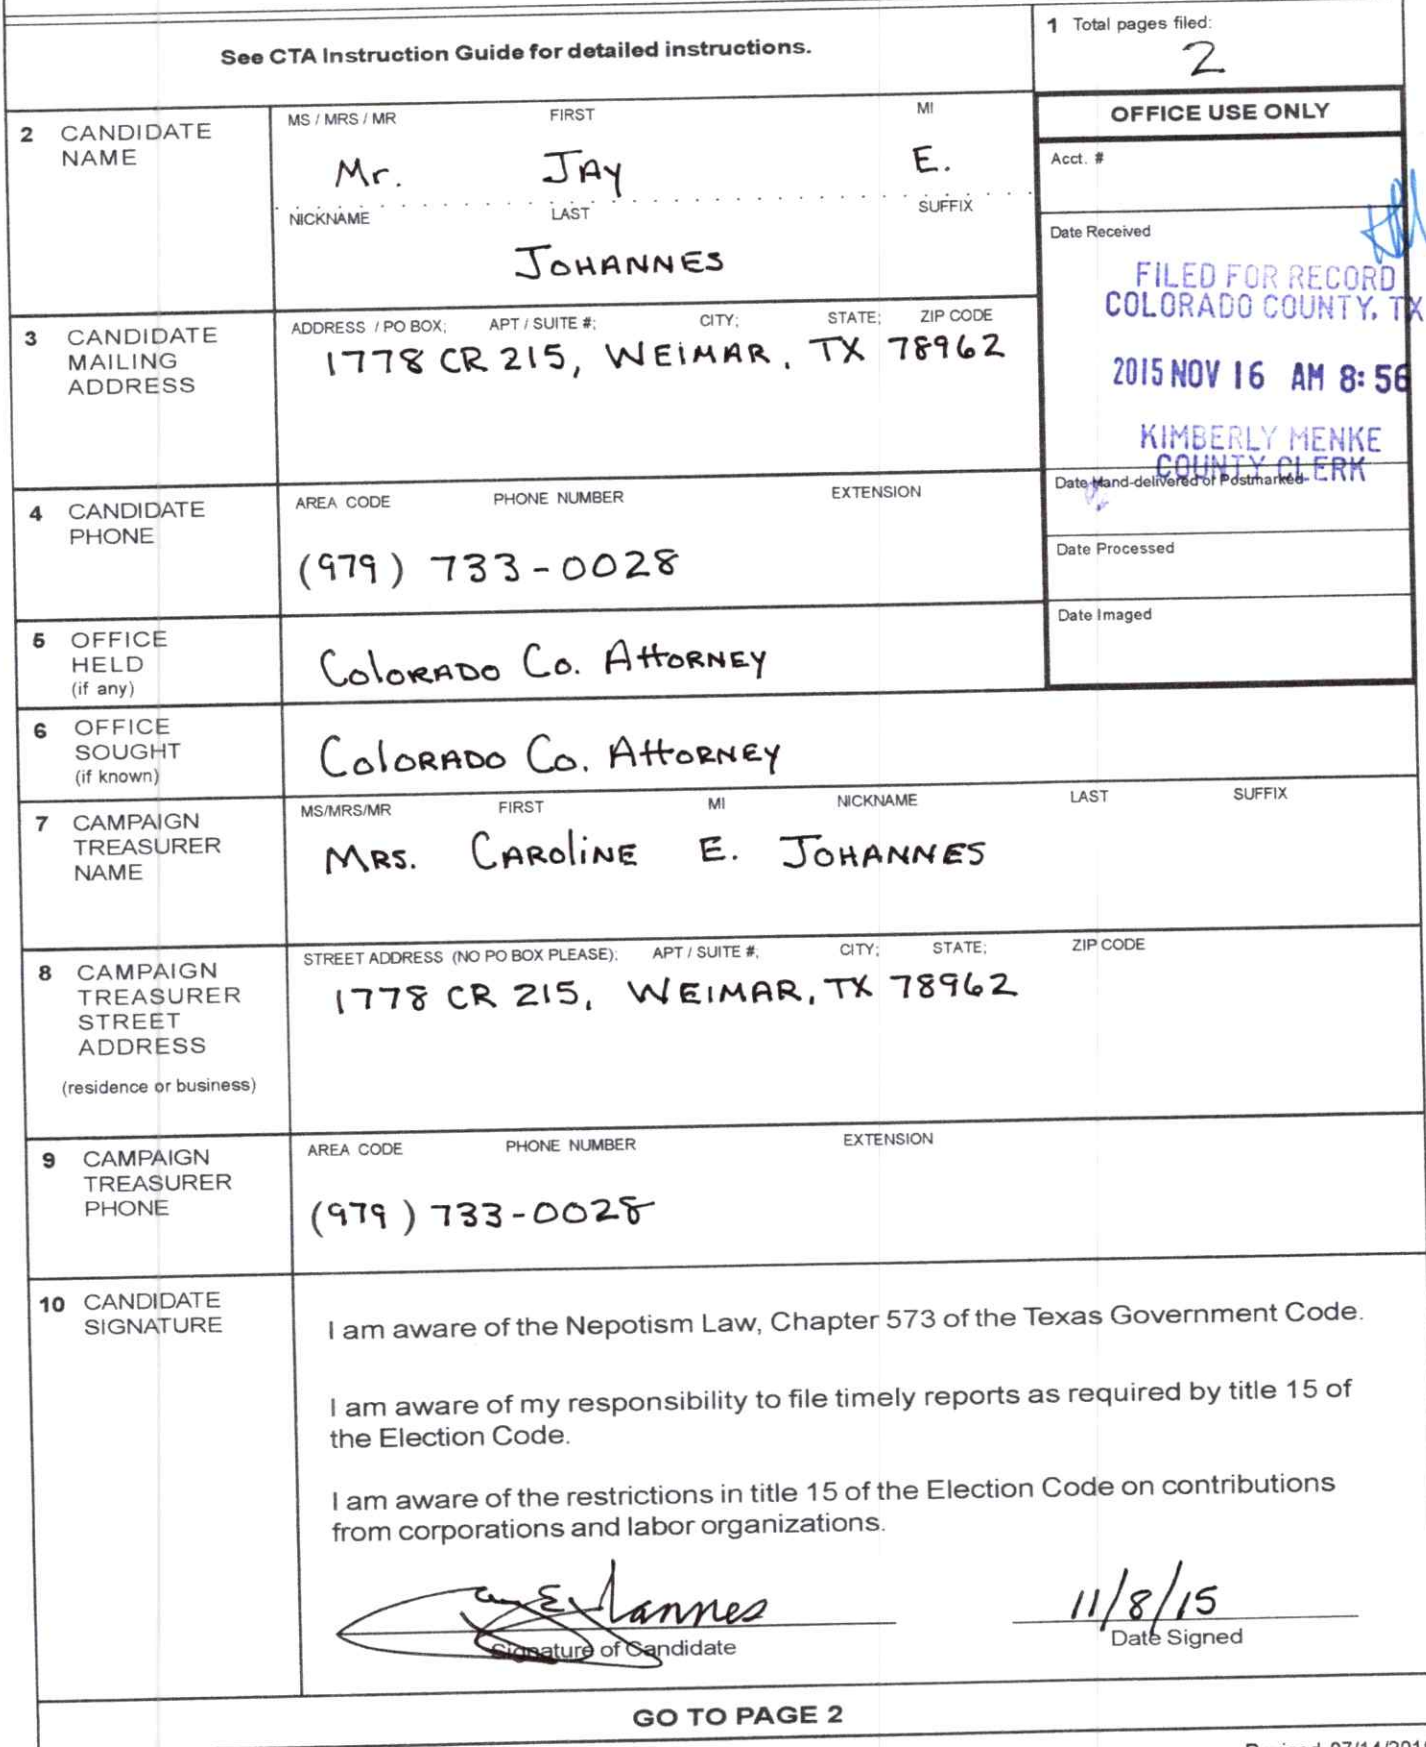 See CTA Instruction Guide for detailed instructions.
1 Total pages filed:
2
OFFICE USE ONLY
Acct. #
Date Received
FILED FOR RECORD
COLORADO COUNTY, TX
2015 NOV 16 AM 8:56
KIMBERLY MENKE
COUNTY CLERK
Date Hand-delivered or Postmarked
Date Processed
Date Imaged
2 CANDIDATE NAME
MS / MRS / MR FIRST MI
Mr. JAY E.
NICKNAME LAST SUFFIX
JOHANNES
3 CANDIDATE MAILING ADDRESS
ADDRESS / PO BOX; APT / SUITE #; CITY; STATE; ZIP CODE
1778 CR 215, WEIMAR, TX 78962
4 CANDIDATE PHONE
AREA CODE PHONE NUMBER EXTENSION
(979) 733-0028
5 OFFICE HELD (if any)
COLORADO Co. ATTORNEY
6 OFFICE SOUGHT (if known)
COLORADO Co. ATTORNEY
7 CAMPAIGN TREASURER NAME
MS/MRS/MR FIRST MI NICKNAME LAST SUFFIX
MRS. CAROLINE E. JOHANNES
8 CAMPAIGN TREASURER STREET ADDRESS
(residence or business)
STREET ADDRESS (NO PO BOX PLEASE); APT / SUITE #; CITY; STATE; ZIP CODE
1778 CR 215, WEIMAR, TX 78962
9 CAMPAIGN TREASURER PHONE
AREA CODE PHONE NUMBER EXTENSION
(979) 733-0028
10 CANDIDATE SIGNATURE
I am aware of the Nepotism Law, Chapter 573 of the Texas Government Code.
I am aware of my responsibility to file timely reports as required by title 15 of
the Election Code.
I am aware of the restrictions in title 15 of the Election Code on contributions
from corporations and labor organizations.
11/8/15
Signature of Candidate Date Signed
GO TO PAGE 2